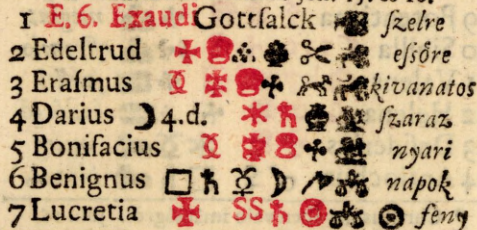 1 E. 6. Exaudi Gottſalck ſzelre
2 Edeltrud eſsőre
3 Eraſmus kivanatos
4 Darius ☽ 4.d. ✶ ♄ ſzaraz
5 Bonifacius nyari
6 Benignus □ ♄ ☿ ☽ napok
7 Lucretia SS ♄ ☉ fény